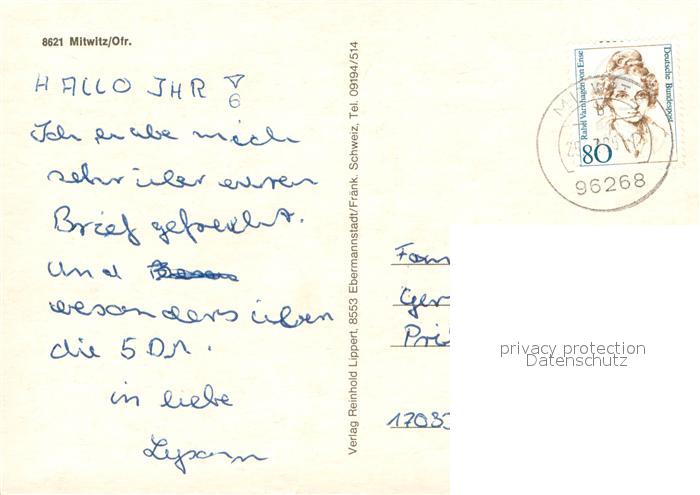 8621 Mitwitz/Ofr.
HALLO IHR
Ich habe mich
sehr über euren
Brief gefreut.
und
besonders über
die 5 DM.
in liebe
Verlag Reinhold Lippert, 8553 Ebermannstadt/Fränk. Schweiz, Tel. 09194/514
Rahel Varnhagen von Ense
Deutsche Bundespost
80
96268
Fam
Ger
Pri
privacy protection
Datenschutz